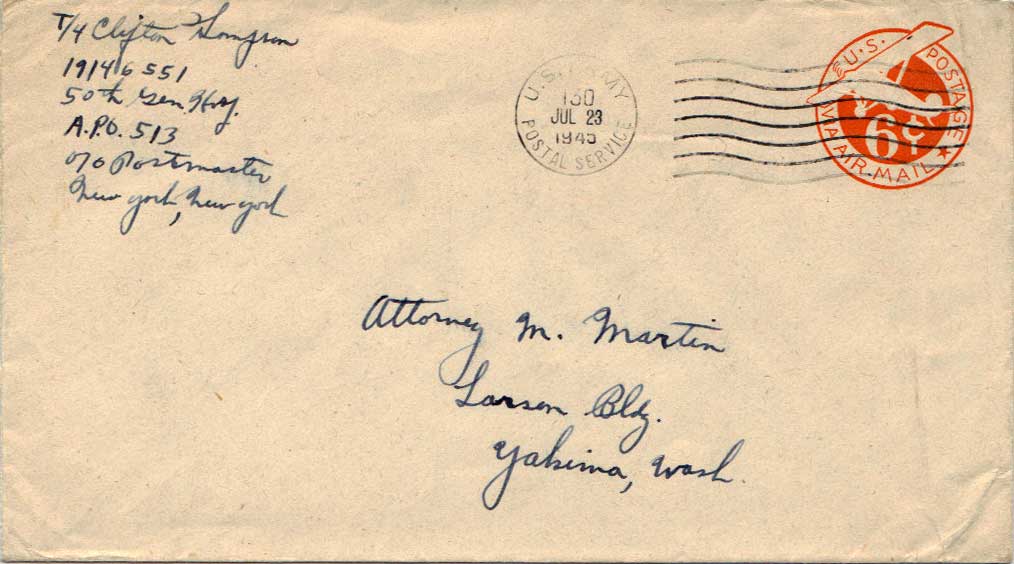 T/4 Clifton Thompson
19146551
50th Gen. Hosp.
A.P.O. 513
c/o Postmaster
New York, New York
U.S. ARMY
130
JUL 23
1945
POSTAL SERVICE
U.S. POSTAGE
6c
VIA AIR MAIL
Attorney M. Martin
Larson Bldg.
Yakima, Wash.